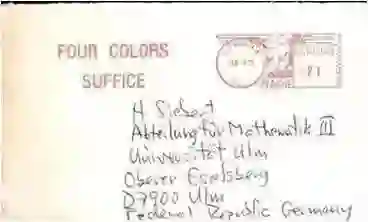 FOUR COLORS
SUFFICE
H Siebert
Abteilung für Mathematik III
Universität Ulm
Oberer Eselsberg
D7900 Ulm
Federal Republic Germany